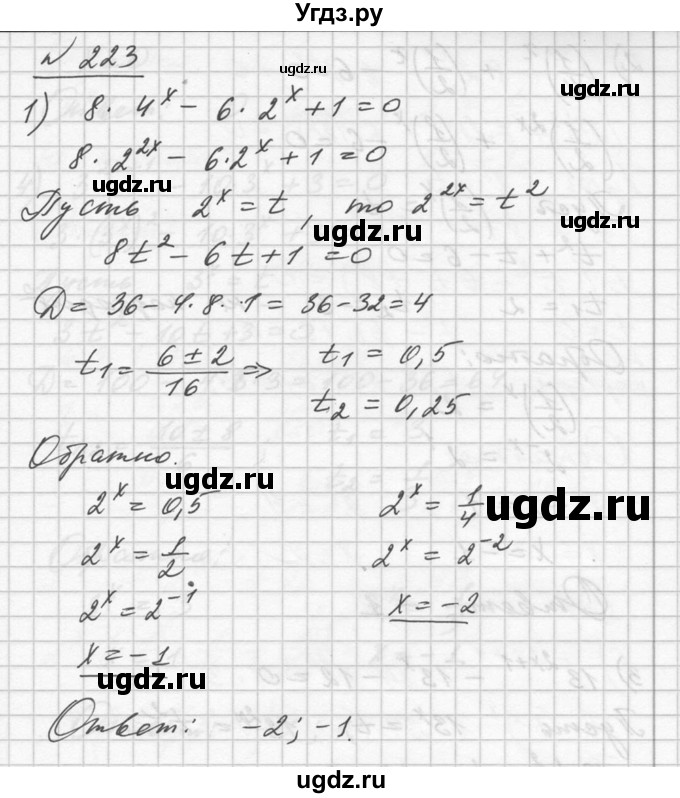 Угдз.ру
№ 223
1) 8 · 4^x − 6 · 2^x + 1 = 0
8 · 2^{2x} − 6 · 2^x + 1 = 0
Пусть 2^x = t, то 2^{2x} = t^2
8t^2 − 6t + 1 = 0
D = 36 − 4 · 8 · 1 = 36 − 32 = 4
t_1 = \frac{6 ± 2}{16} ⇒ t_1 = 0,5
t_2 = 0,25
Обратно.
2^x = 0,5 2^x = \frac{1}{4}
2^x = \frac{1}{2} 2^x = 2^{-2}
2^x = 2^{-1} x = −2
x = −1
Ответ: −2; −1.
ugdz.ru
ugdz.ru
ugdz.ru
ugdz.ru
ugdz.ru
ugdz.ru
ugdz.ru
ugdz.ru
ugdz.ru
ugdz.ru
ugdz.ru
ugdz.ru